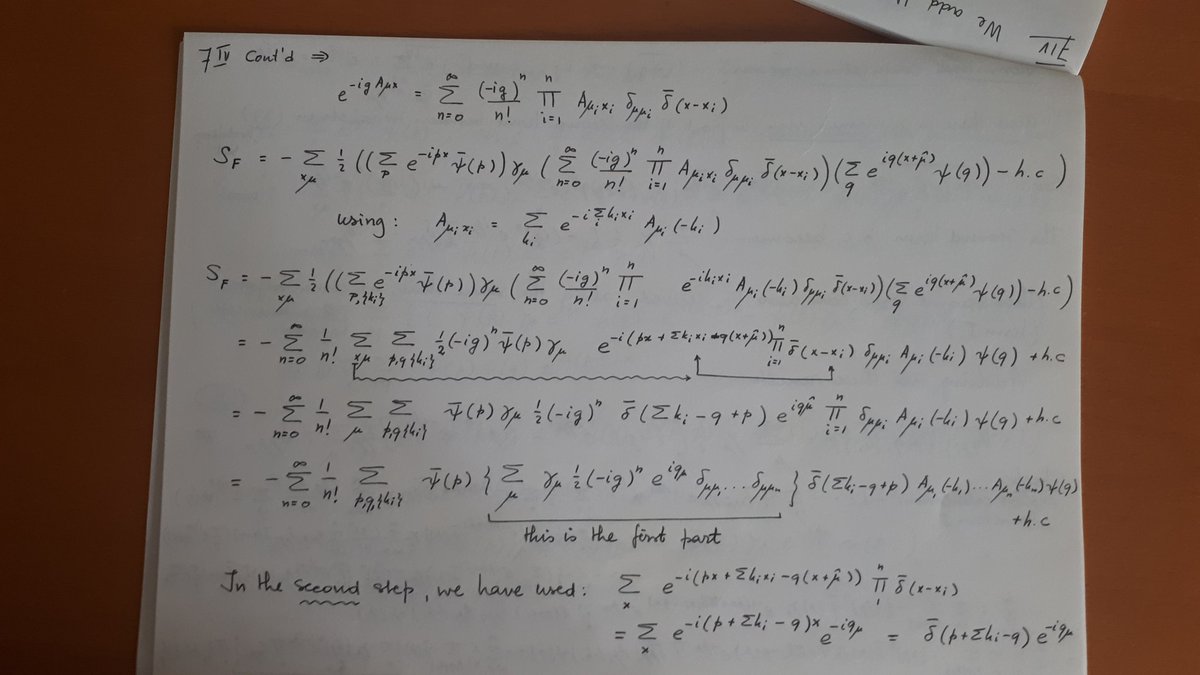 We add
7IV
7 IV Cont'd ⇒
e^{-igA_{μx}} = Σ_{n=0}^{∞} (-ig)^n/n! Π_{i=1}^{n} A_{μ_i x_i} δ_{μμ_i} δ̄(x-x_i)
S_F = - Σ_{xμ} ½ ((Σ_p e^{-ipx} ψ̄(p)) γ_μ (Σ_{n=0}^{∞} (-ig)^n/n! Π_{i=1}^{n} A_{μ_i x_i} δ_{μμ_i} δ̄(x-x_i)) (Σ_q e^{iq(x+μ̂)} ψ(q)) - h.c)
using: A_{μ_i x_i} = Σ_{k_i} e^{-i Σ_i k_i x_i} A_{μ_i}(-k_i)
S_F = - Σ_{xμ} ½ ((Σ_{p,{k_i}} e^{-ipx} ψ̄(p)) γ_μ (Σ_{n=0}^{∞} (-ig)^n/n! Π_{i=1}^{n} e^{-ik_i x_i} A_{μ_i}(-k_i) δ_{μμ_i} δ̄(x-x_i)) (Σ_q e^{iq(x+μ̂)} ψ(q)) - h.c)
= - Σ_{n=0}^{∞} 1/n! Σ_{xμ} Σ_{p,q{k_i}} ½(-ig)^n ψ̄(p) γ_μ e^{-i(px + Σk_i x_i - q(x+μ̂))} Π_{i=1}^{n} δ̄(x-x_i) δ_{μμ_i} A_{μ_i}(-k_i) ψ(q) + h.c
= - Σ_{n=0}^{∞} 1/n! Σ_μ Σ_{p,q{k_i}} ψ̄(p) γ_μ ½(-ig)^n δ̄(Σk_i - q + p) e^{iqμ̂} Π_{i=1}^{n} δ_{μμ_i} A_{μ_i}(-k_i) ψ(q) + h.c
= - Σ_{n=0}^{∞} 1/n! Σ_{p,q,{k_i}} ψ̄(p) { Σ_μ γ_μ ½(-ig)^n e^{iqμ} δ_{μμ_1} ... δ_{μμ_n} } δ̄(Σk_i - q + p) A_{μ_1}(-k_1) ... A_{μ_n}(-k_n) ψ(q)
+ h.c
this is the first part
In the second step, we have used: Σ_x e^{-i(px + Σk_i x_i - q(x+μ̂))} Π_1^n δ̄(x-x_i)
= Σ_x e^{-i(p + Σk_i - q)x} e^{-iqμ} = δ̄(p + Σk_i - q) e^{-iqμ}